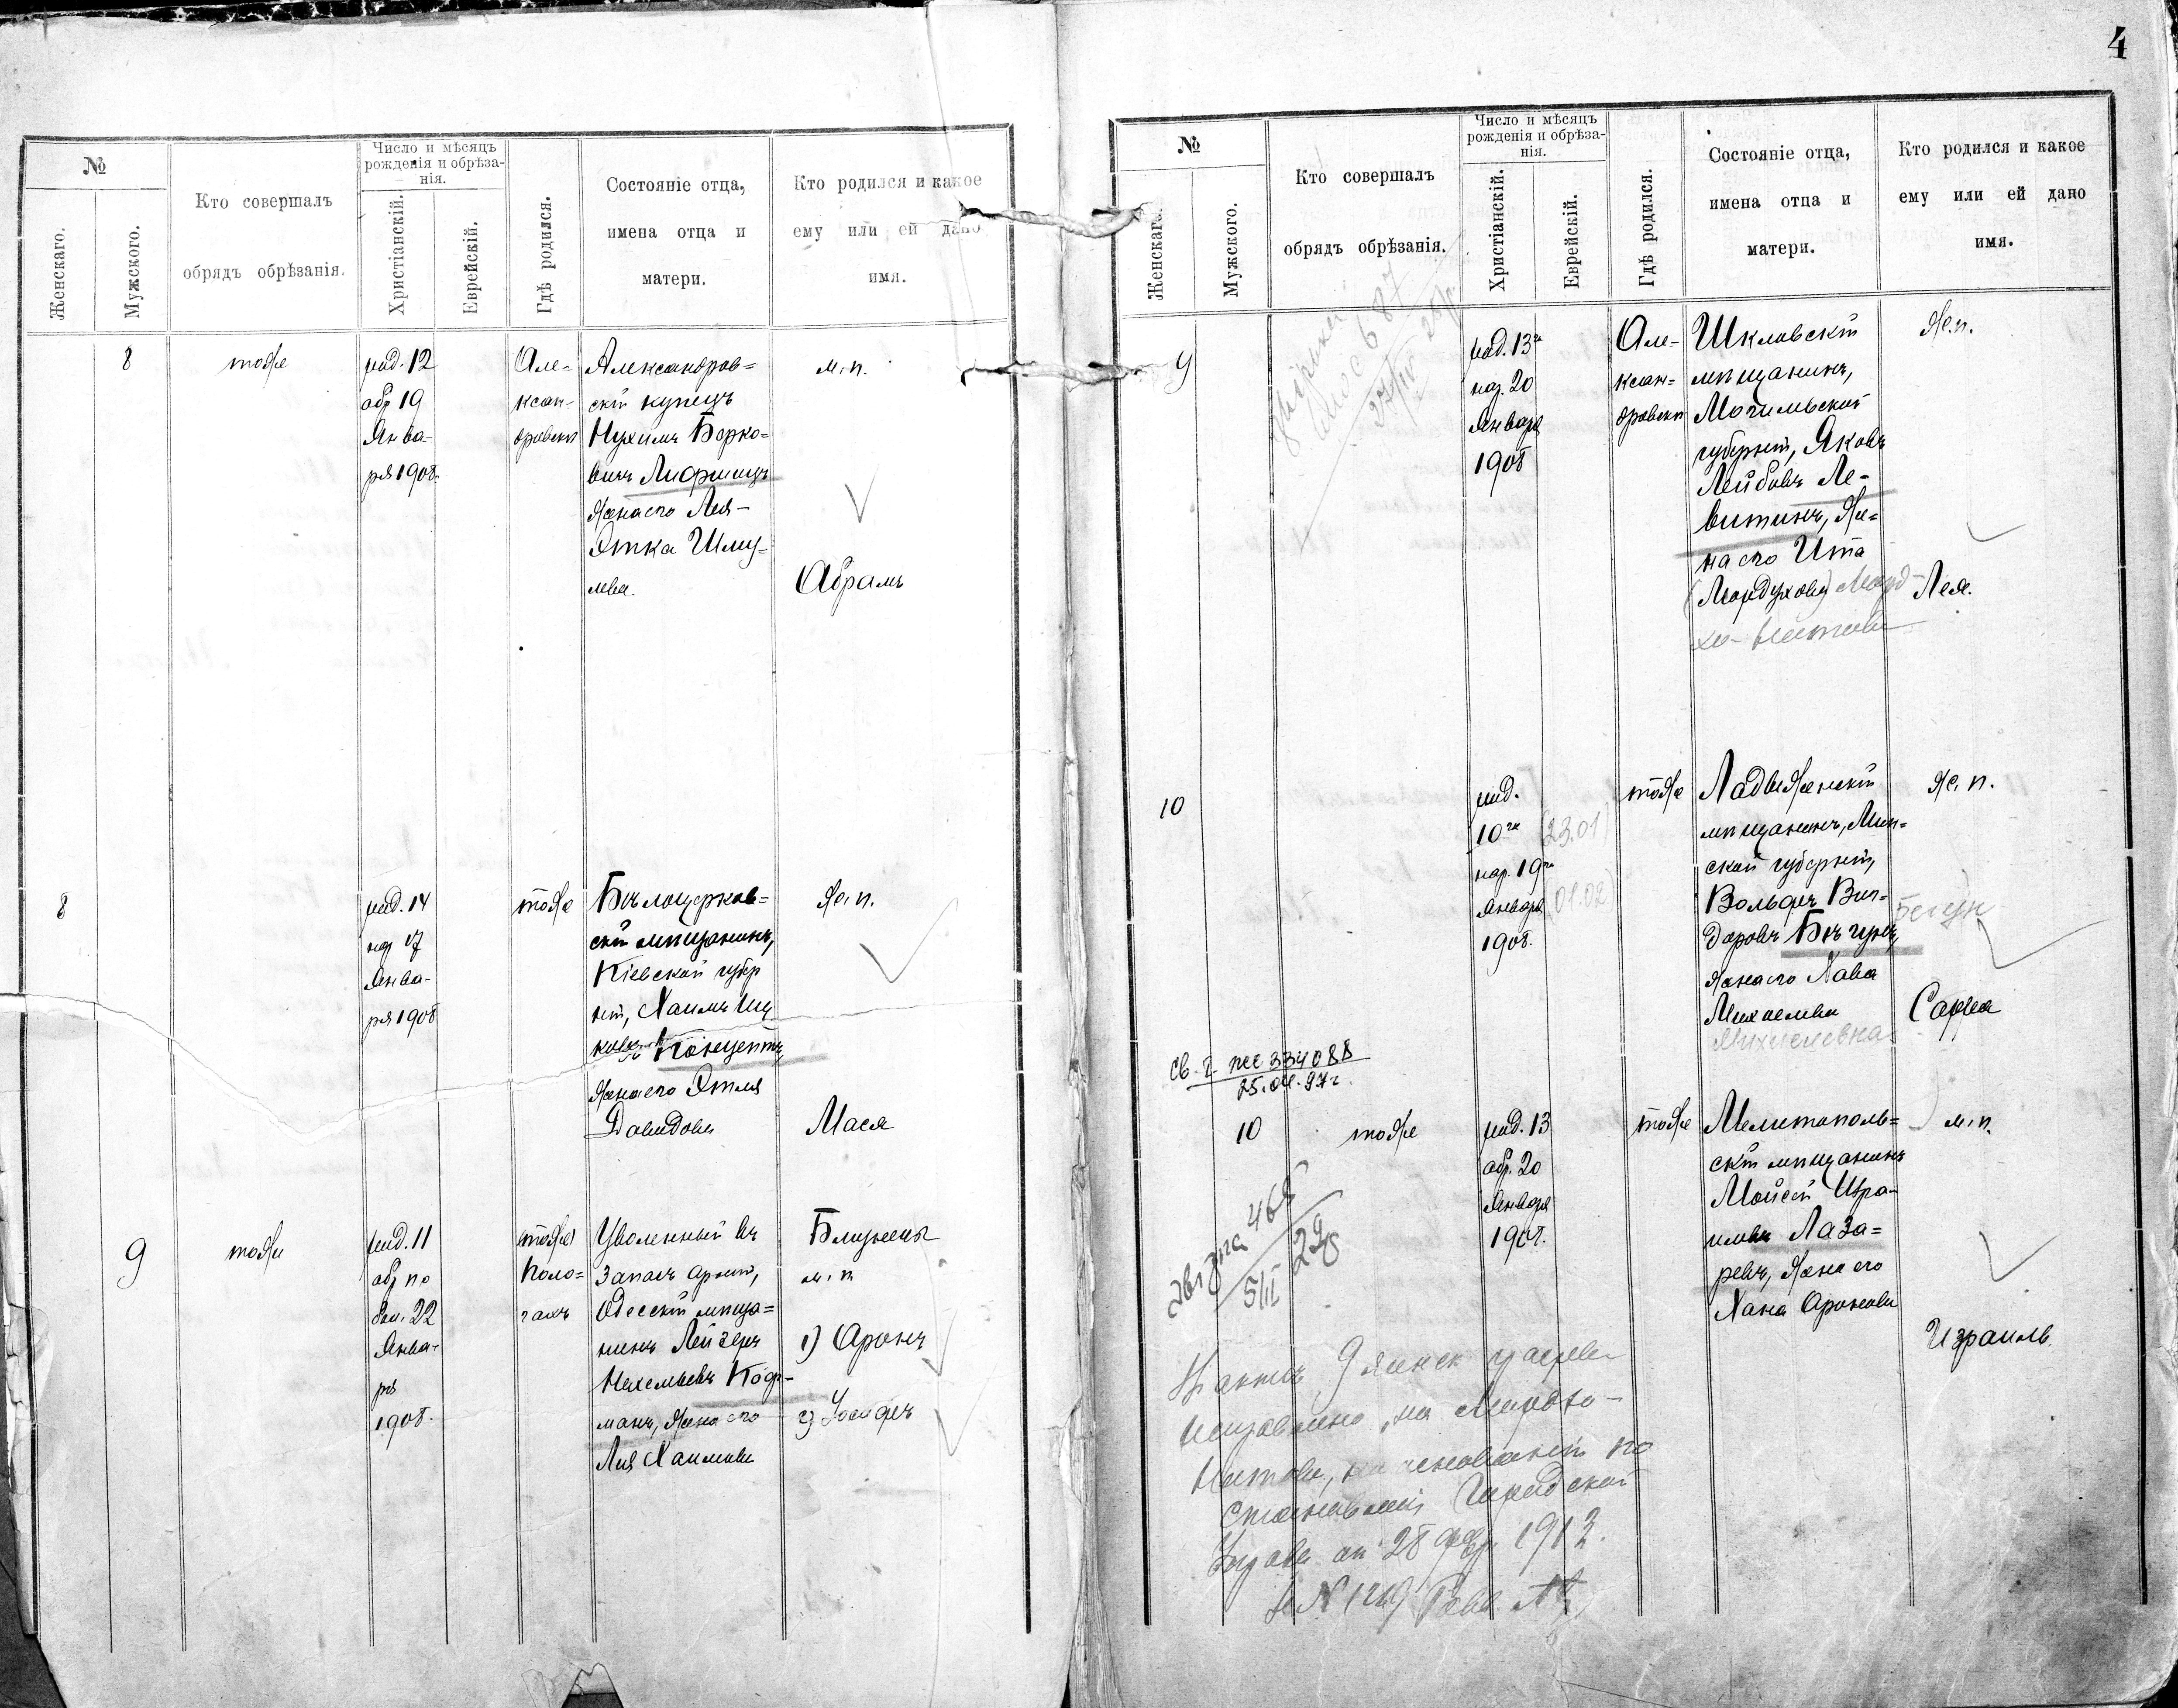 4
№
Женскаго.
Мужского.
Кто совершалъ
обрядъ обрѣзанія.
Число и мѣсяцъ
рожденія и обрѣза-
нія.
Христіанскій.
Еврейскій.
Гдѣ родился.
Состояніе отца,
имена отца и
матери.
Кто родился и какое
ему или ей дано
имя.
8
тоже
род. 12
обр 19
Янва-
ря 1908.
Але-
ксан-
дровски
Александров=
скій купецъ
Нухимъ Берко=
вичъ Лифшицъ
Жена его Лея-
Этка Шму-
лева.
м. п.
Абрамъ
8
род. 14
нар 17
Янва-
ря 1908
тоже
Бѣлоцерков=
скій мѣщанинъ,
Кіевской губер
ніи, Хаимъ Иц
Концептъ,
Жена его Этля
Давидова
Ж. п.
Мася
9
тоже
род. 11
обр по
бол. 22
Янва-
ря
1908.
тоже
Поло=
гахъ
Уволенный въ
запасъ арміи,
Одесскій мѣща=
нинъ Лейзеръ
Коф-
манъ, Жена его
Лия Хаимова
Близнецы
м. п
1) Аронъ
2) Іосифъ
№
Женскаго.
Мужского.
Кто совершалъ
обрядъ обрѣзанія.
Число и мѣсяцъ
рожденія и обрѣза-
нія.
Христіанскій.
Еврейскій.
Гдѣ родился.
Состояніе отца,
имена отца и
матери.
Кто родился и какое
ему или ей дано
имя.
9
род. 13го
наз. 20
Января
1908
Але-
ксан=
дровски
Шкловскій
мѣщанинъ,
Могилевской
губерніи, Яковъ
Лейбовъ Ле-
витинъ, Же=
на его Ита
(Мордухова)
Ж. п.
Лея.
10
род.
10го (23.01)
нар. 19го
Января (01.02)
1908.
тоже
Ладыженскій
мѣщанинъ,
ской губерніи,
Вольфъ Виг-
доровъ Бѣгунъ,
Жена его Хава
Михелева
Михелевна
Ж. п.
Бегун
Сарра
334088
25.04.97г.
10
тоже
род. 13
обр. 20
Января
1908.
тоже
Мелитополь=
скій мѣщанинъ
Мойсей Изра-
илевъ Лаза=
ревъ, Жена его
Хана Аронова
м. п.
Израиль
на основаніи по
становленія Городской
Управы от 28 фев. 1913.